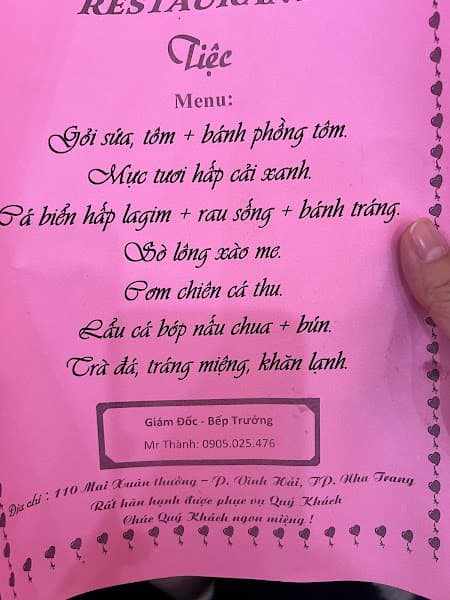 RESTAURANT
Tiệc
Menu:
Gỏi sứa, tôm + bánh phồng tôm.
Mực tươi hấp cải xanh.
Cá biển hấp lagim + rau sống + bánh tráng.
Sò lông xào me.
Cơm chiên cá thu.
Lẩu cá bóp nấu chua + bún.
Trà đá, tráng miệng, khăn lạnh.
Giám Đốc - Bếp Trưởng
Mr Thành: 0905.025.476
Địa chỉ : 110 Mai Xuân thưởng – P. Vĩnh Hải, TP. Nha Trang
Rất hân hạnh được phục vụ Quý Khách
Chúc Quý Khách ngon miệng !